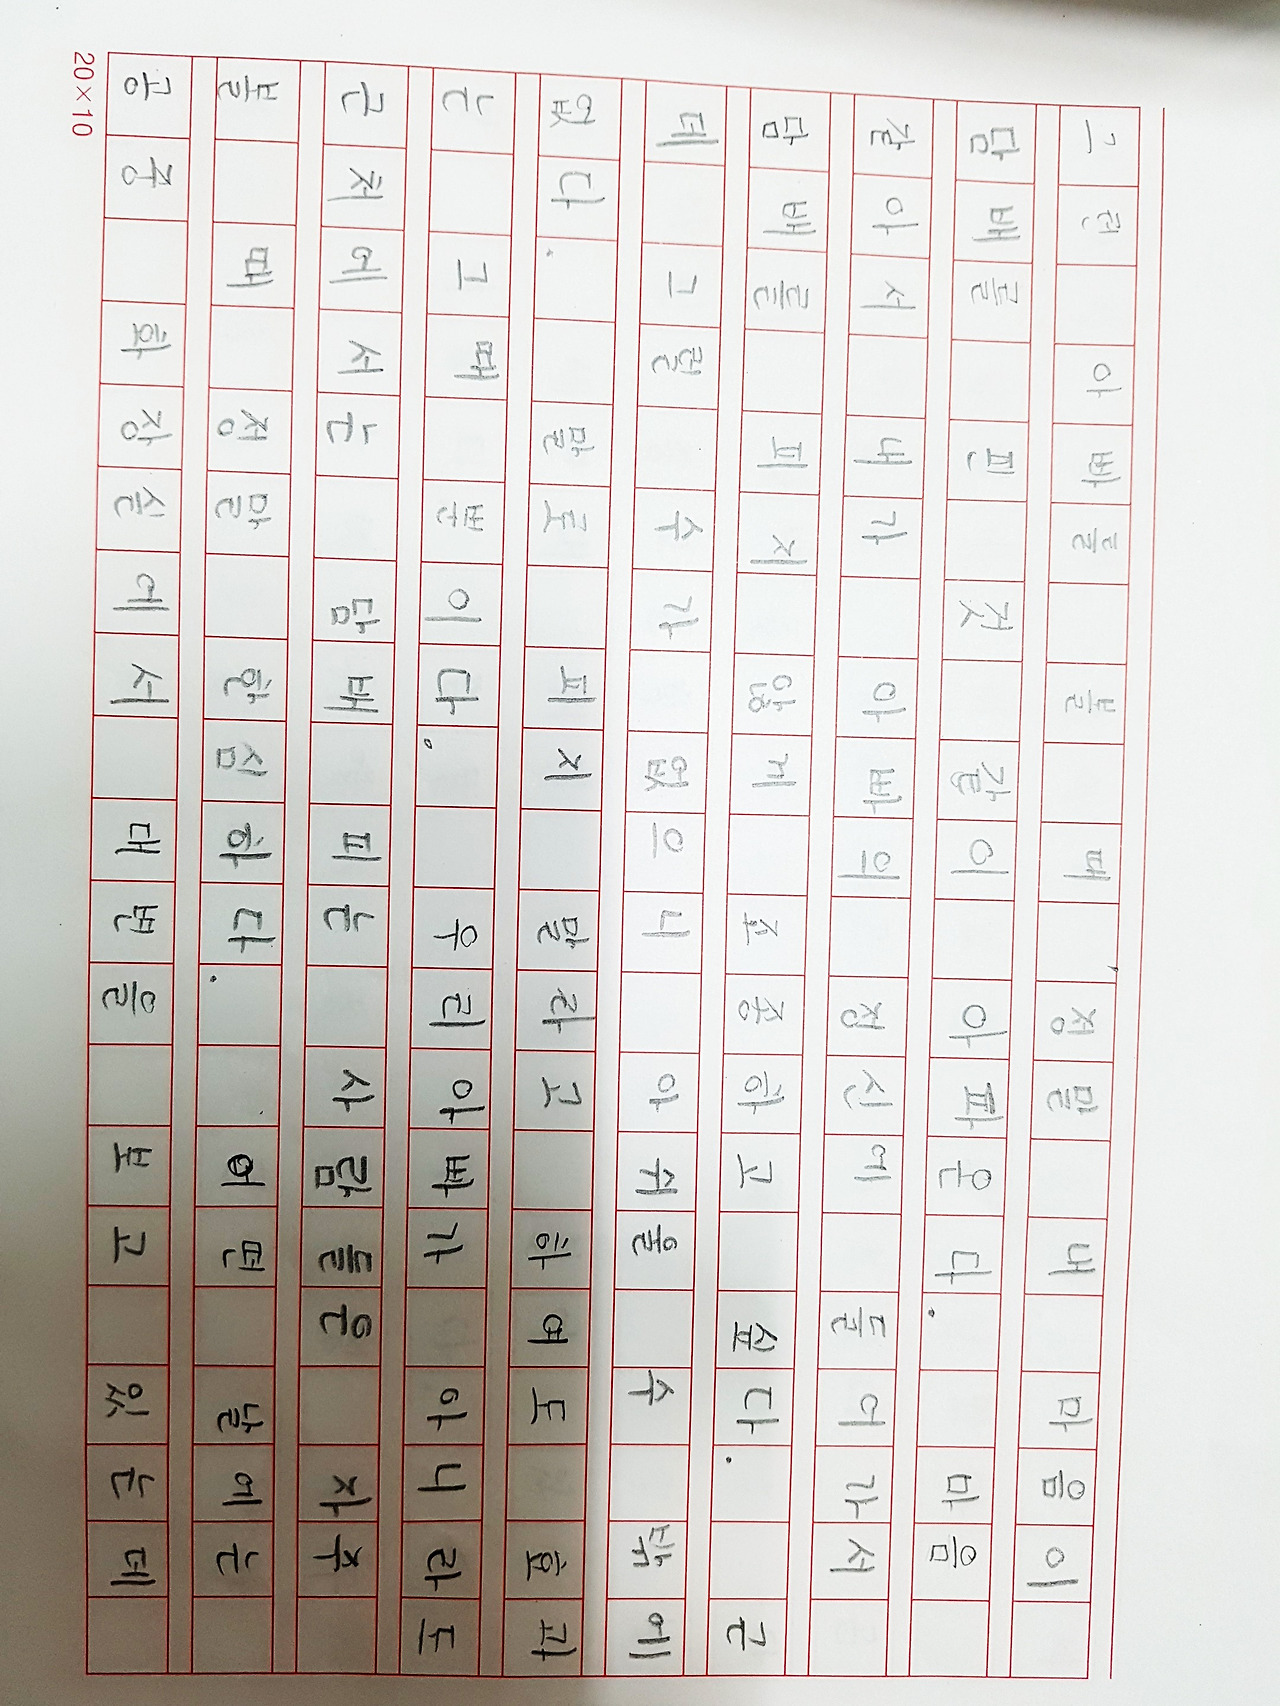 그런 아빠를 볼 때, 정말 내 마음이
담배를 핀 것 같이 아파온다. 마음
같아서 내가 아빠의 정신에 들어가서
담배를 피지 않게 조종하고 싶다. 근
데 그럴 수가 없으니 아쉬울 수 밖에
없다. 말로 피지 말라고 하여도 효과
는 그때 뿐이다. 우리아빠가 아니라도
근처에서는 담배 피는 사람들은 자주
볼 때 정말 한심하다. 어떤 날에는
공중 화장실에서 대변을 보고 있는데
20×10